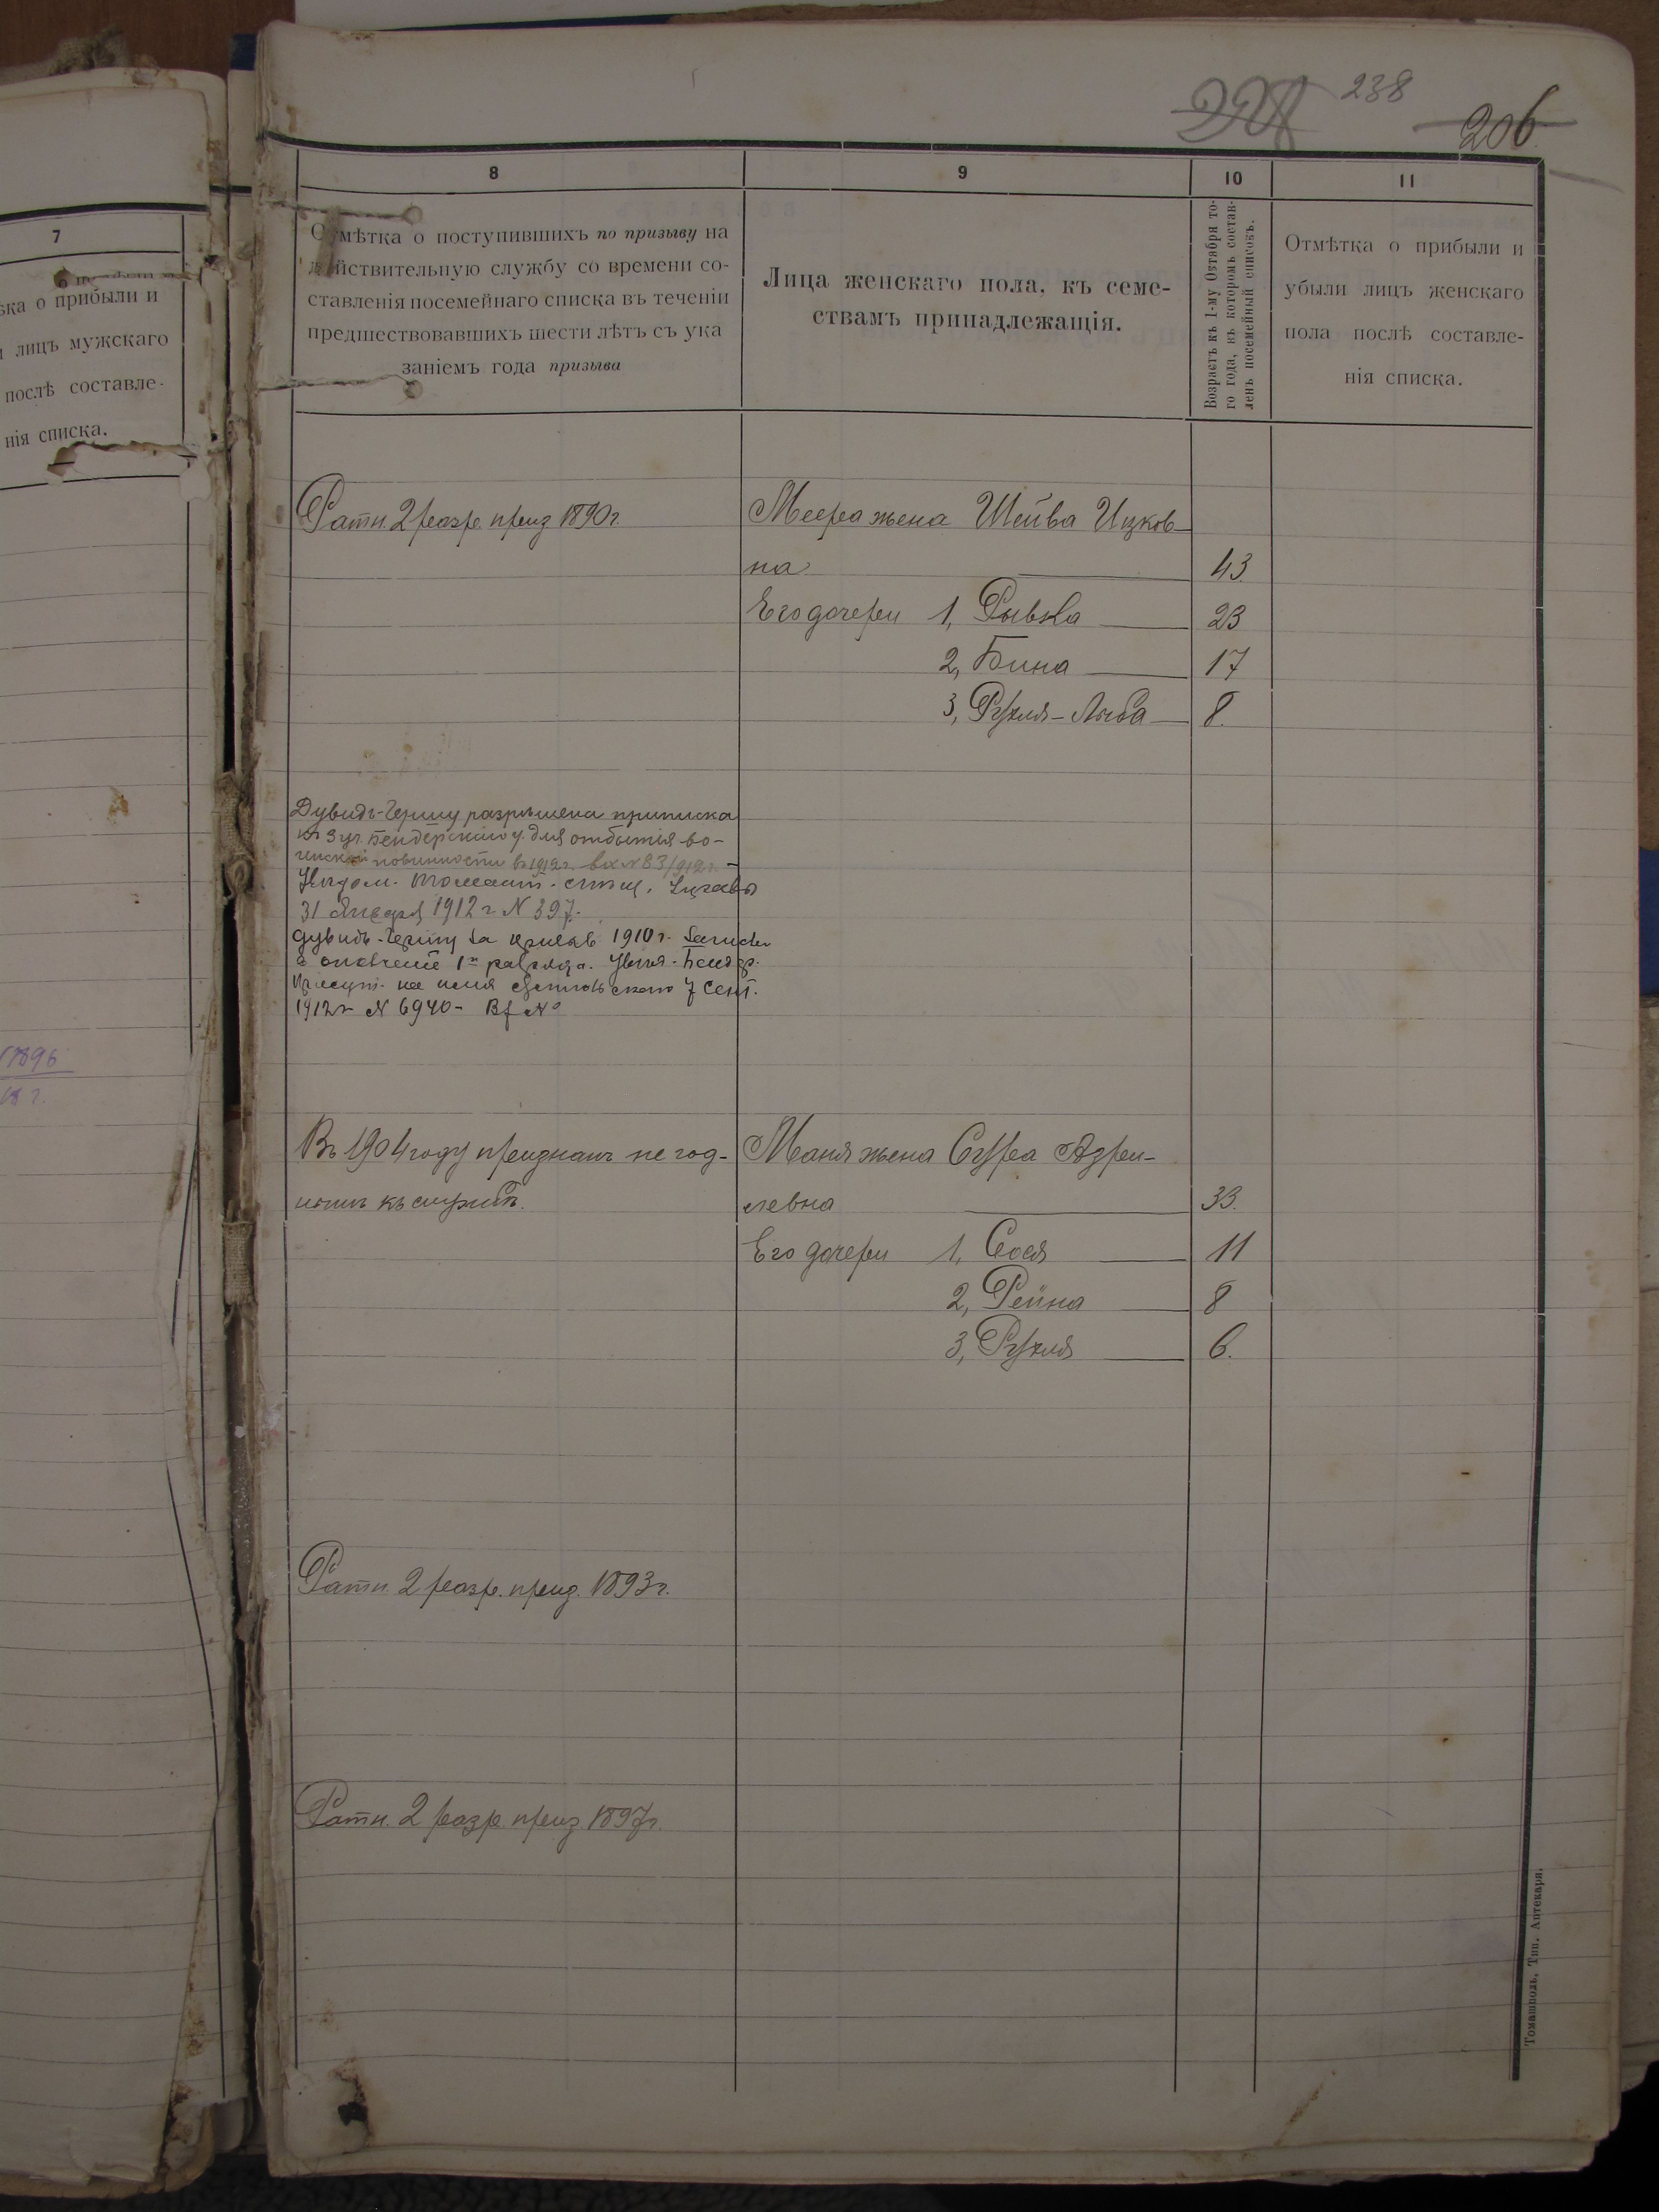 238
206
7
о прибыли и
лицъ мужскаго
послѣ составле-
нія списка.
1896
8
9
10
11
Отмѣтка о поступившихъ по призыву на
дѣйствительную службу со времени со-
ставленія посемейнаго списка въ теченіи
предшествовавшихъ шести лѣтъ съ ука
заніемъ года призыва
Лица женскаго пола, къ семе-
ствамъ принадлежащія.
Возрастъ къ 1-му Октября то-
го года, въ которомъ состав-
ленъ посемейный списокъ.
Отмѣтка о прибыли и
убыли лицъ женскаго
пола послѣ составле-
нія списка.
Ратн. 2 разр. приз 1890 г.
Меера жена Шейва Ицков-
на 43
Его дочери 1, Рывка 23
2, Бина 17
3, Рухля-Люба 8.
Дувидъ-Гершу разрѣшена приписка
къ 3 уч. Бендерскаго у. для отбытія во-
инской повинности въ 1912 г. вх № 83/912 г.
31 Января 1912 г N 397.
Дувидъ-Гершу 1910 г.
1 разряда.
7 Сент.
1912 г N 6940- №
Въ 1904 году признанъ не год-
нымъ къ службѣ.
Маня жена Сура Азри-
левна 33.
Его дочери 1, Сося 11
2, Рейна 8
3, Рухля 6.
Ратн. 2 разр. приз. 1893 г.
Ратн. 2 разр. приз 1897 г.
Томашполь, Тип. Аптекаря.